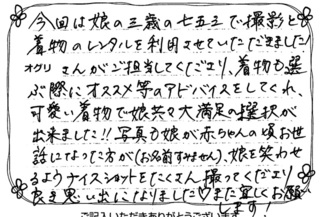 今回は娘の三歳の七五三で撮影と
着物のレンタルを利用させていただきました
オグリさんがご担当してくださり、着物も選
ぶ際にオススメ等のアドバイスをしてくれ、
可愛い着物で娘共々大満足の選択が
出来ました!!写真も娘が赤ちゃんの頃お世
話になってた方が(お名前すみません)、娘を笑わせ
るようナイスショットをたくさん撮ってくださり
良き思い出になりました♡また宜しくお願
します!
ご記入いただきありがとうございます